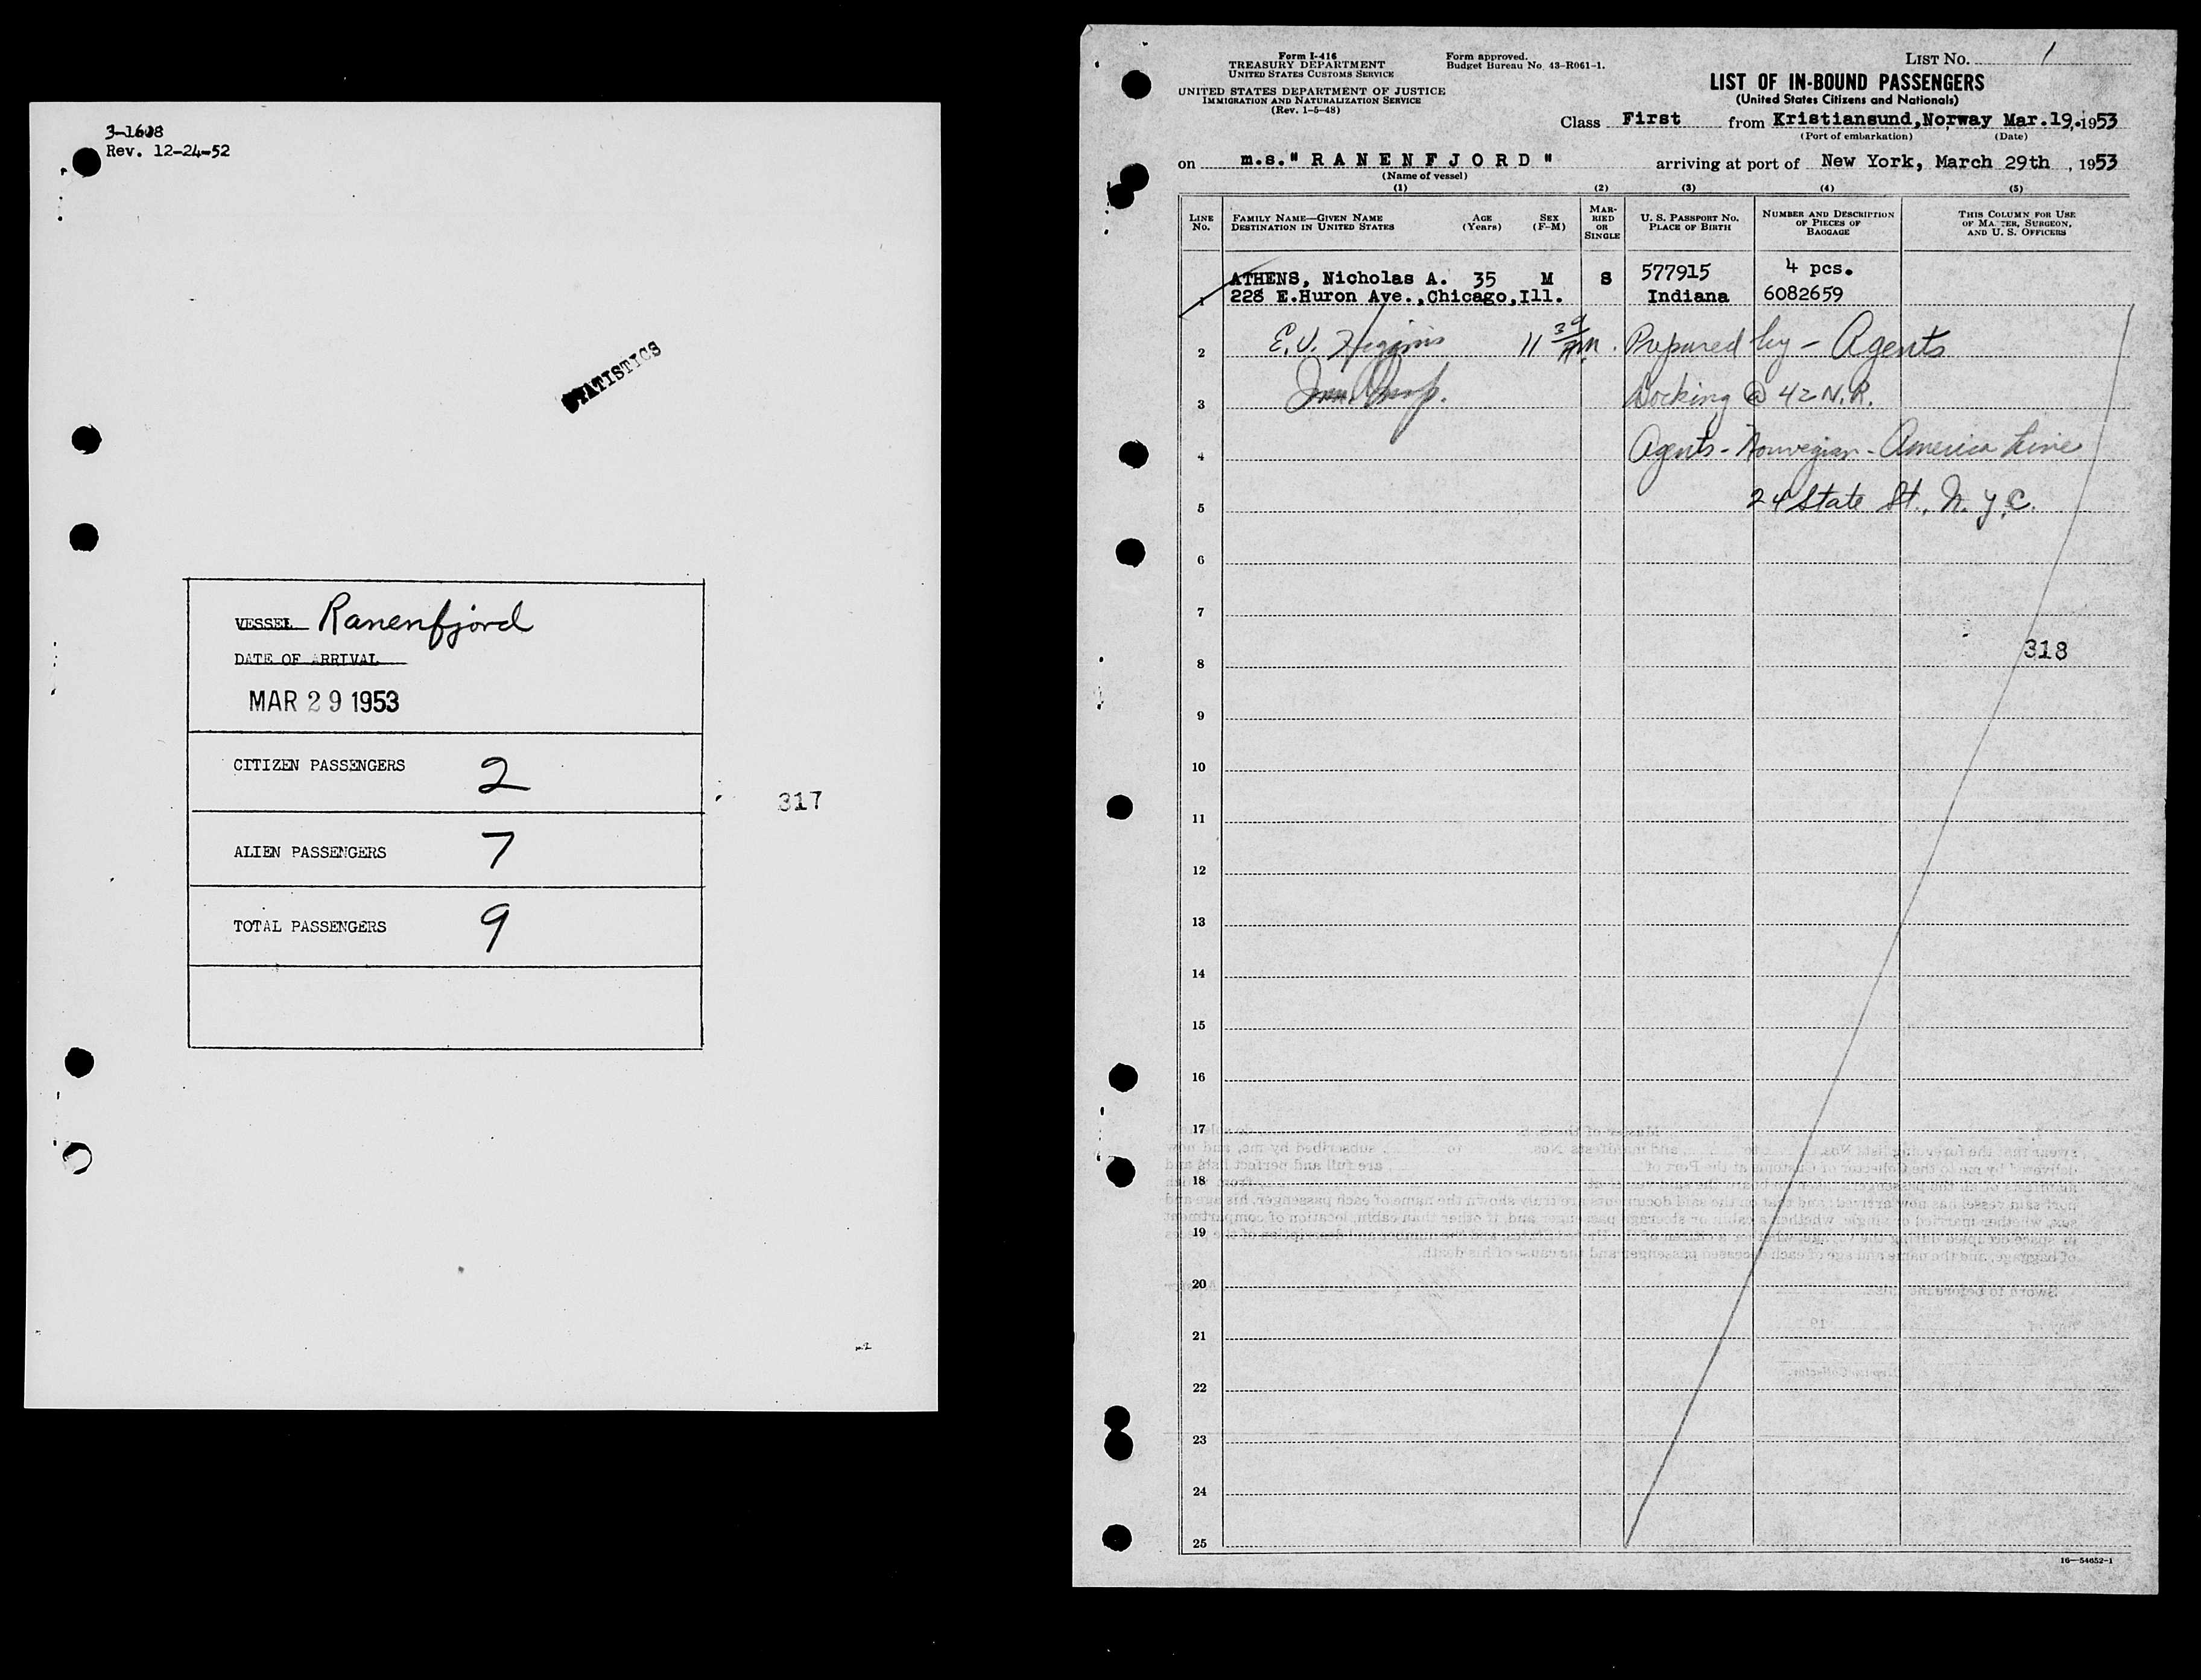 3-1608
Rev. 12-24-52
STATISTICS
VESSEL Ranenfjord
DATE OF ARRIVAL
MAR 29 1953
CITIZEN PASSENGERS 2
317
ALIEN PASSENGERS 7
TOTAL PASSENGERS 9
Form I-416
TREASURY DEPARTMENT
UNITED STATES CUSTOMS SERVICE
UNITED STATES DEPARTMENT OF JUSTICE
IMMIGRATION AND NATURALIZATION SERVICE
(Rev. 1-5-48)
Form approved.
Budget Bureau No. 43-R061-1.
LIST NO. 1
LIST OF IN-BOUND PASSENGERS
(United States Citizens and Nationals)
Class First from Kristiansund, Norway Mar. 19, 1953
(Port of embarkation) (Date)
on m.s. " R A N E N F J O R D " arriving at port of New York, March 29th, 1953
(Name of vessel)
(1) (2) (3) (4) (5)
LINE No.
FAMILY NAME—GIVEN NAME
DESTINATION IN UNITED STATES
AGE (Years)
SEX (F-M)
MAR-
RIED
OR
SINGLE
U. S. PASSPORT NO.
PLACE OF BIRTH
NUMBER AND DESCRIPTION
OF PIECES OF
BAGGAGE
THIS COLUMN FOR USE
OF MASTER, SURGEON,
AND U. S. OFFICERS
ATHENS, Nicholas A. 35 M S 577915 4 pcs.
1 228 E.Huron Ave.,Chicago,Ill. Indiana 6082659
2 E. V. Higgins 11 30 AM. Prepared by - Agents
3 Docking @ 42 N.R.
4 Agents - Norwegian - America Line
5 24 State St., N.Y.C.
6
7
8 318
9
10
11
12
13
14
15
16
17
18
19
20
21
22
23
24
25
16—54652-1